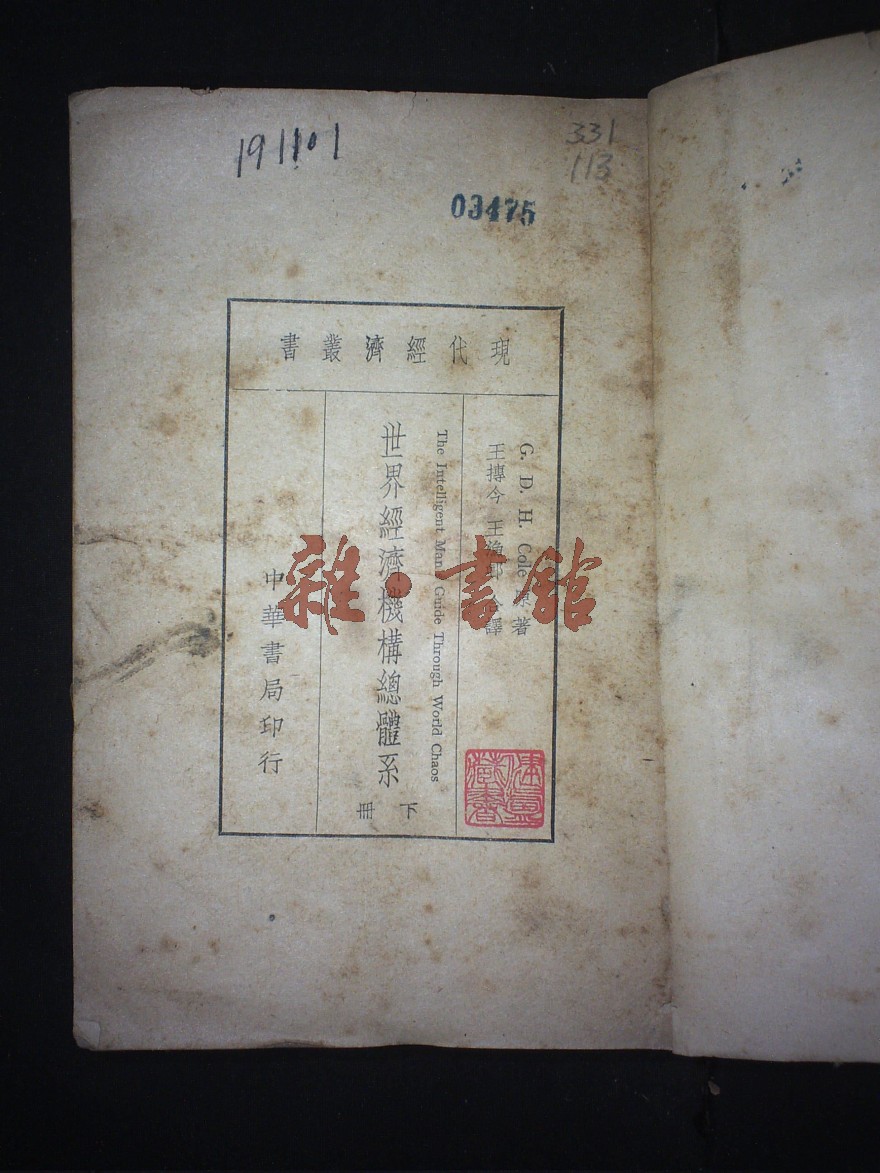 191101
331
113
03475
現代經濟叢書
G. D. H. Cole 原著
王摶今 王漁邨 合譯
The Intelligent Man's Guide Through World Chaos
世界經濟機構總體系
下冊
中華書局印行
雜·書館